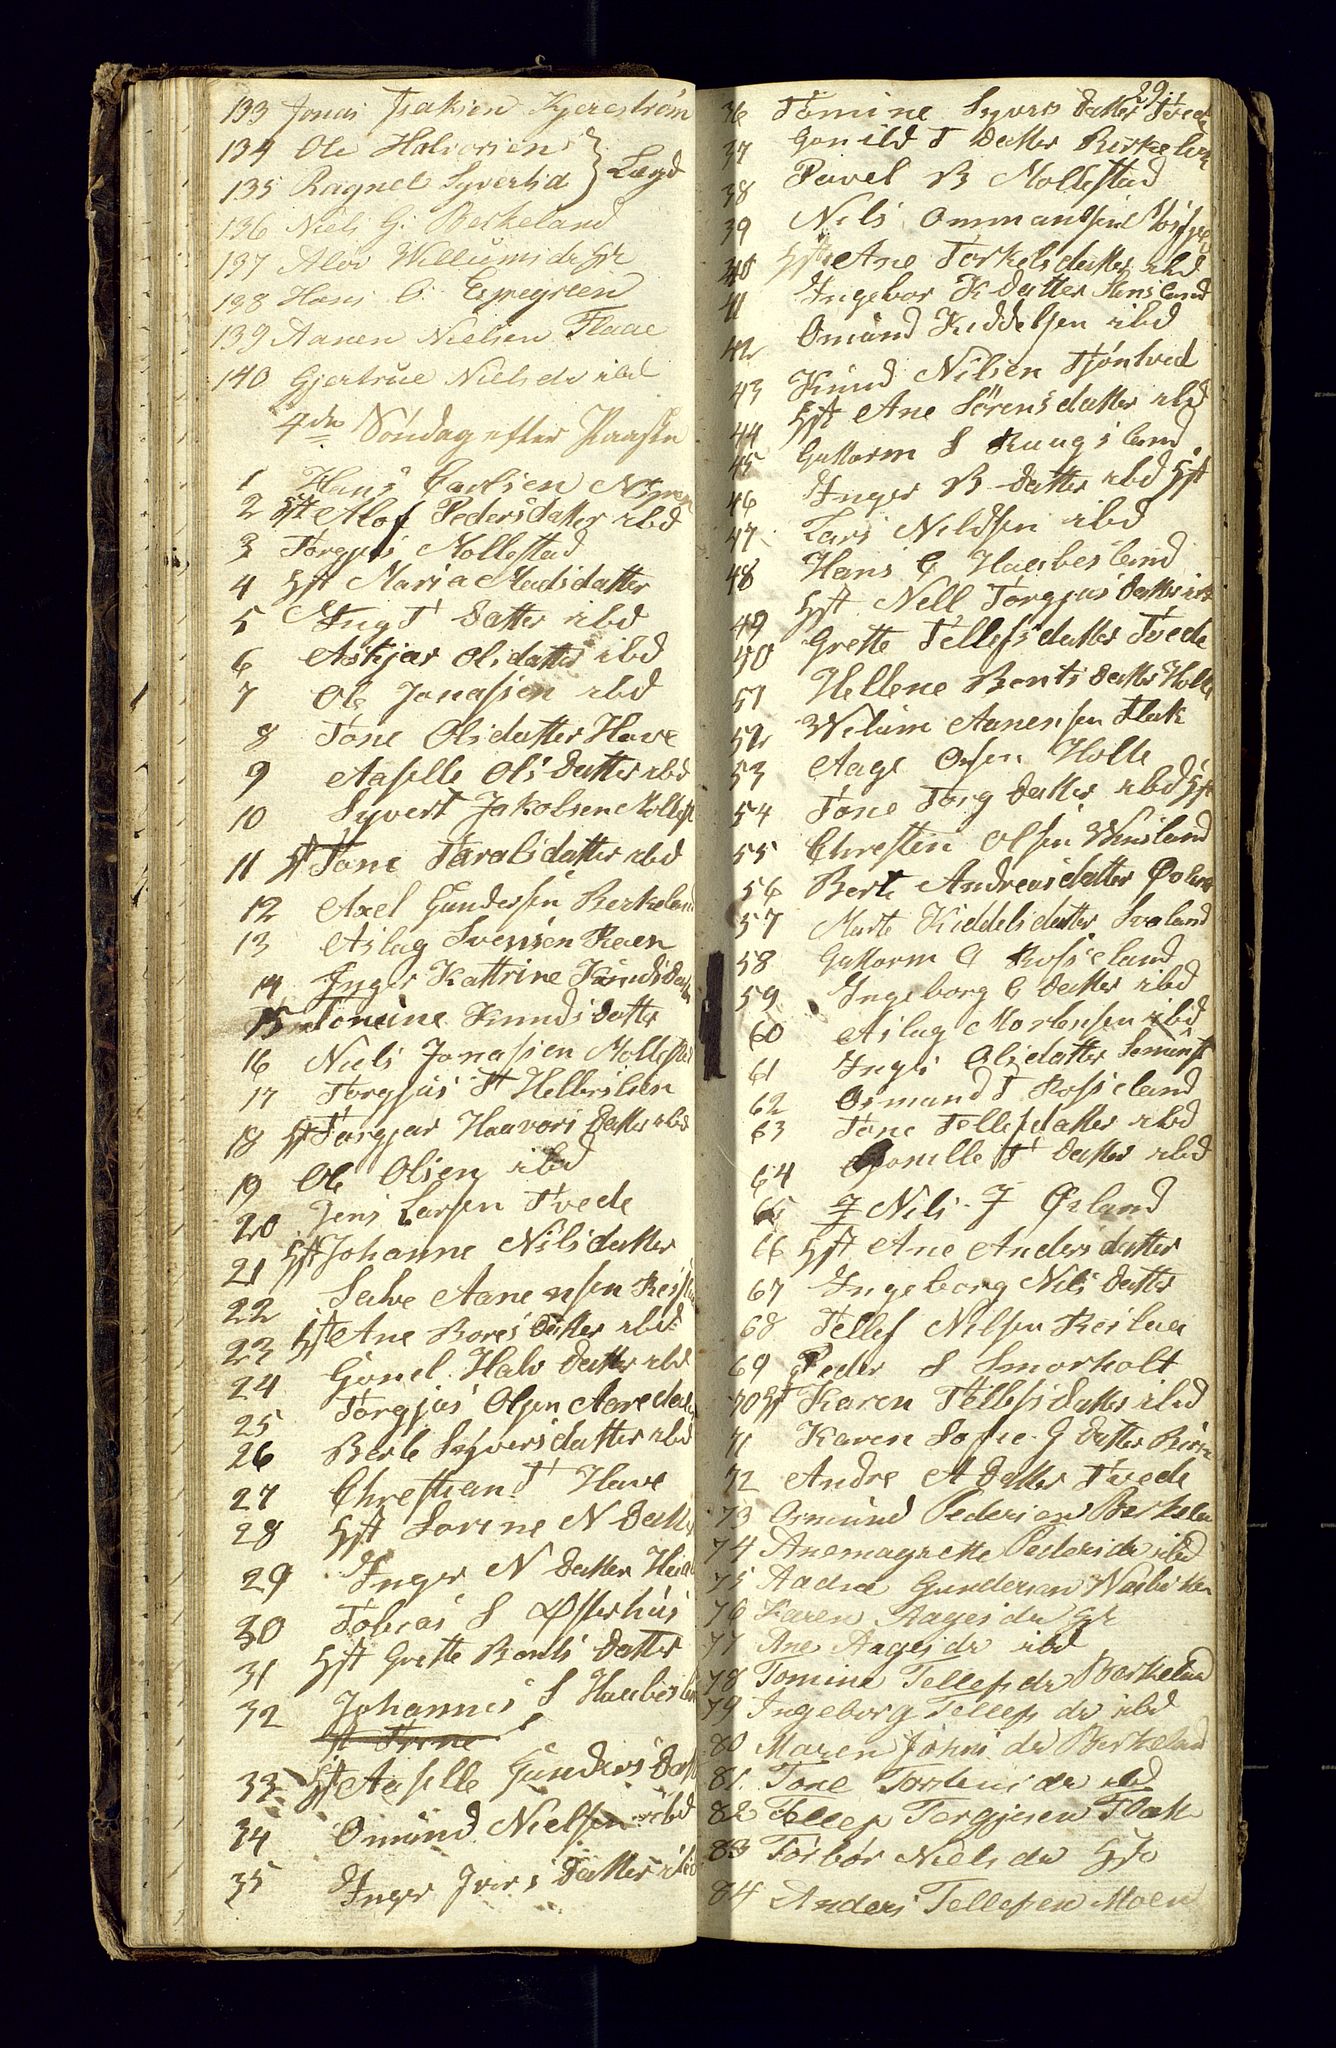 133 Jonas Isaksen Kjerestrøm
134 Ole Halvorsen
135 Ragnel Syvertsd } Lægd
136 Niels G. Berkeland
137 Alov Willumsdr Hr
138 Hans C. Espegreen
139 Aanen Nielsen Flaae
140 Gjertrue Nielsdr ibd
4de Søndag efter Paaske
1 Hans Carlsen
2 Hst Alof Pedersdatter ibd
3 Torgjus Mollestad
4 Hst Maria Madsdatter
5 Ing T datter ibd
6 Askjær Olsdatter ibd
7 Ole Jonassen ibd
8 Tone Olsdatter Have
9 Aaselle Olsdatter ibd
10 Syvert Jakobsen Mollest
11 Hst Tone Taralsdatter ibd
12 Axel Gundersen Berkeland
13 Aslag Svensen Raen
14 Inger Kattrine Knudsdatter
15 Tomine Knudsdatter
16 Niels Jonassen Mollestad
17 Torgjus T
18 Hst Torgjær Haavorsdatter ibd
19 Ole Olsen ibd
20 Jens Larsen Tvede
21 Hst Johanne Nilsdatter
22 Salve Aanensen
23 Hst Ane Boresdatter ibd
24 Gonel Halv datter ibd
25 Torgjus Olsen
26 Berte Syversdatter ibd
27 Chrestian T Have
28 Hst Sorine N datter
29 Inger N datter
30 Tobias S Østerhus
31 Hst Grette Bentsdatter
32 Johannes S Haabesland
Hst Trine
33 Hst Aaselle Gundersdatt
34 Omund Nielsen ibd
35 Inger Iversdatter ibd
29.
36 Tomine Syversdatter Tvede
37 Gonild T datter Berkeland
38 Pavel B Mollestad
39 Nils Ommandsen
40 Hst Ane Torkelsdatter ibd
41 Ingebor K datter
42 Omund Kiddelsen ibd
43 Knud Nilsen Tjontved
44 Hst Ane Sörensdatter ibd
45 Guttorm S Kaagsland
46 Inger B datter ibd Hst
47 Lars Nildsen ibd
48 Hans C Haabesland
49 Hst Nell Torgjusdatter ibd
50 Grette Tellefsdatter Tvede
51 Hellene Bentsdatter Holle
52 Welum Aanensen Flak
53 Aage Olsen Holle
54 Tone Torg datter ibd Hst
55 Chresten Olsen
56 Berte Andreasdatter
57 Marte Kieddelsdatter Svaland
58 Guttorm C Rosseland
59 Ingeborg C datter ibd
60 Aslag Mortensen ibd
61 Ingli Olsdatter
62 Osmund T Rosseland
63 Tone Tellefsdatter ibd
64 Gonelle T datter ibd
65 Nils J Øsland
66 Hst Ane Andersdatter
67 Ingeborg Nilsdatter
68 Tellef Nilsen
69 Peder S Smorholt
70 Hst Karen Tellefsdatter ibd
71 Karen Sofie G datter
72 Andre A datter Tvede
73 Osmund Pedersen Berkeland
74 Anemagrette Pedersdr ibd
75 Aadne Gundersen
76 Karen Aagesdr Hr
77 Ane Aagesdr ibd
78 Tomine Tellefsdr Berkeland
79 Ingeborg Tellefsdr ibd
80 Maren Johnsdr Berkeland
81 Tone Torstensdr ibd
82 Tellef Torgjusen Flak
83 Torbor Nielsdr Hst
84 Anders Tellefsen Moen